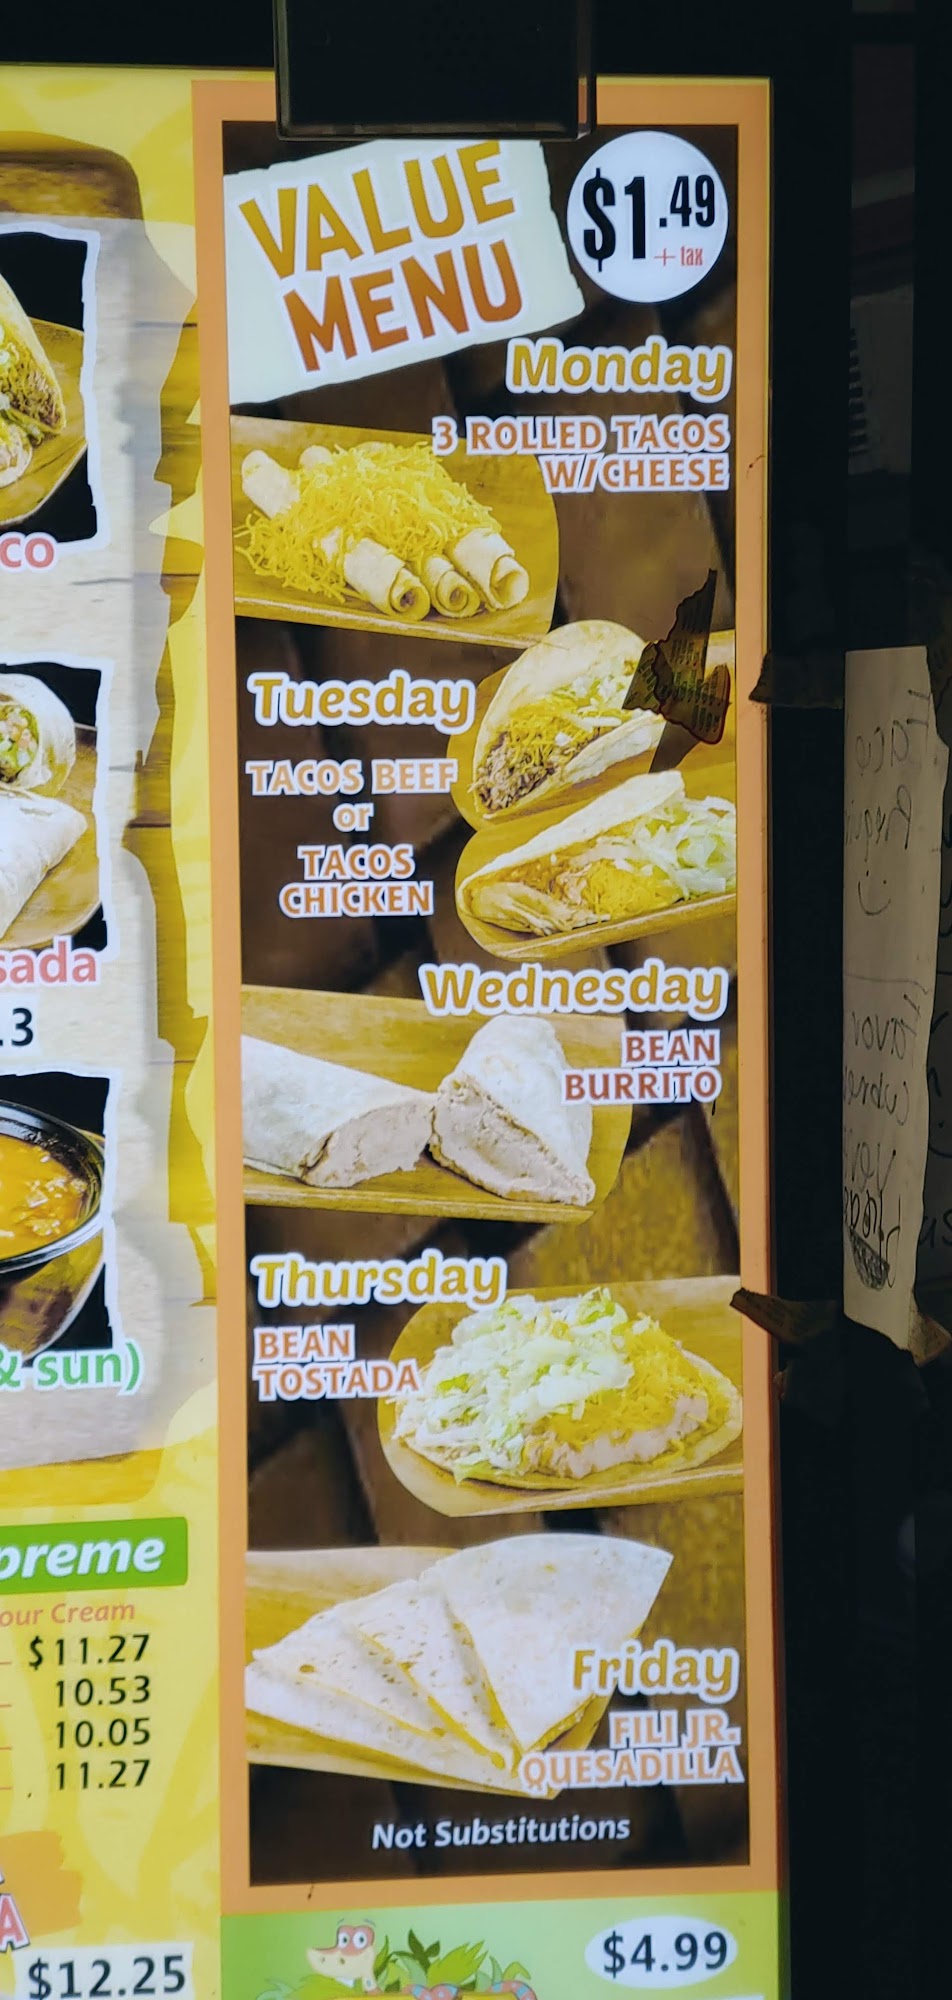 VALUE
MENU
$1.49
+ tax
Monday
3 ROLLED TACOS
W/CHEESE
Tuesday
TACOS BEEF
or
TACOS
CHICKEN
Wednesday
BEAN
BURRITO
Thursday
BEAN
TOSTADA
Friday
FILI JR.
QUESADILLA
Not Substitutions
$4.99
co
sada
.13
& sun)
preme
our Cream
$11.27
10.53
10.05
11.27
A
$12.25